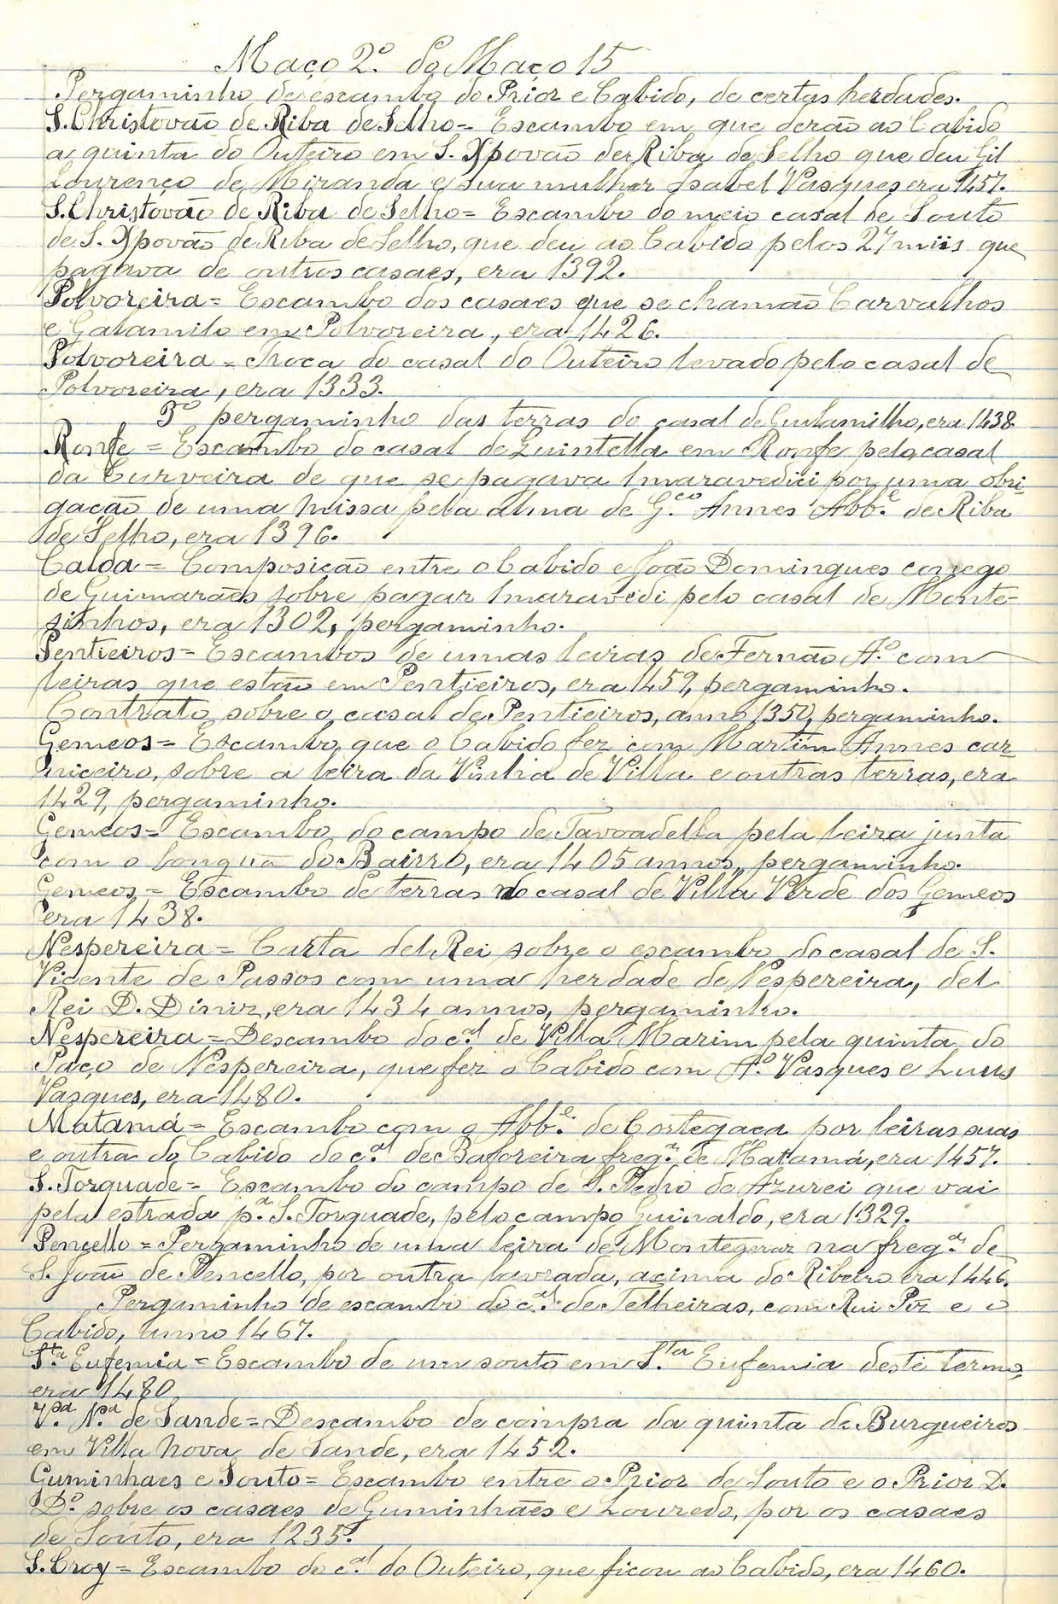 Maço 2º do Maço 15
Pergaminho de escambo do Prior e Cabido, de certas herdades.
S. Christovão de Riba de Selho = Escambo em que derão ao Cabido
a quinta do Outeiro em S. Xpovão de Riba de Selho que deu Gil
Lourenço de Miranda e sua mulher Isabel Vasques era 1457.
S. Christovão de Riba de Selho = Escambo do meio casal de Souto
de S. Xpovão de Riba de Selho, que deu ao Cabido pelos 27 miis que
pagava de outros casaes, era 1392.
Polvoreira = Escambo dos casaes que se chamão Carvalhos
e Galamilo em Polvoreira, era 1426.
Polvoreira = troca do casal do Outeiro levado pelo casal de
Polvoreira, era 1333.
3º pergaminho das terras do casal de Gulamilho, era 1438
Ronfe = Escambo do casal de Quintella em Ronfe pelo casal
da Curveira de que se pagava 1 maravedii por uma obri-
gação de uma missa pela alma de G.co Annes Abb.e de Riba
de Selho, era 1396.
Calda = Composição entre o Cabido e João Domingues conego
de Guimarães sobre pagar 1 maravedi pelo casal de Monte-
sinhos, era 1302, pergaminho.
Pentieiros = Escambos de umas leiras de Fernão A.º com
leiras que estão em Pentieiros, era 1459, pergaminho.
Contrato sobre o casal de Pentieiros, anno 1350, pergaminho.
Gemeos = Escambo que o Cabido fez com Martim Annes car-
niceiro, sobre a leira da Vinha de Villa e outras terras, era
1429, pergaminho.
Gemeos = Escambo do campo de Tavoadella pela leira junta
com o longuo do Bairro, era 1405 annos, pergaminho.
Gemeos = Escambo de terras do casal de Villa Verde dos Gemeos
era 1438.
Nespereira = Carta del Rei sobre o escambo do casal de S.
Vicente de Passos com uma herdade de Nespereira, del
Rei D. Diniz, era 1434 annos, pergaminho.
Nespereira = Descambo do c.al de Villa Marim pela quinta do
Paço de Nespereira, que fez o Cabido com A.º Vasques e Luiis
Vasques, era 1480.
Matamá = Escambo com o Abb.e de Cortegaça por leiras suas
e outra do Cabido do c.al de Baforeira freg.a de Matamá, era 1457.
S. Torquade = Escambo do campo de S. Pedro de Azurei que vai
pela estrada p.a S. Torquade, pelo campo Guinaldo, era 1329.
Pencello = Pergaminho de uma leira de Montegeraz na freg.a de
S. João de Pencello, por outra lavrada, acima do Ribeiro era 1446.
Pergaminho de escambo do c.al de Telheiras, com Rui Piz e o
Cabido, anno 1467.
S.ta Eufemia = Escambo de um souto em S.ta Eufemia deste termo,
era 1480
V.a N.a de Sande = Descambo de compra da quinta de Burgueiros
em Villa Nova de Sande, era 1452.
Guminhaes e Souto = Escambo entre o Prior de Souto e o Prior D.
D.º sobre os casaes de Guminhães e Louredo, por os casaes
de Souto, era 1235.
S. Croy = Escambo do c.al do Outeiro, que ficou ao Cabido, era 1460.